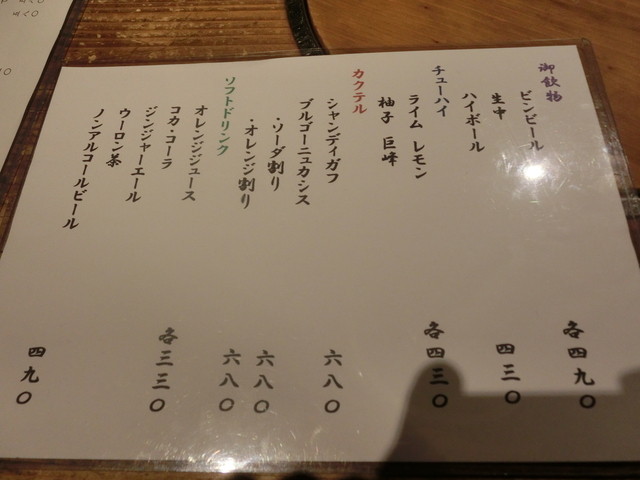 御飲物
ビンビール
各四九〇
生中
四三〇
ハイボール
チューハイ
ライム レモン
各四三〇
柚子 巨峰
カクテル
シャンディガフ
六八〇
ブルゴーニュカシス
・ソーダ割り
六八〇
・オレンジ割り
六八〇
ソフトドリンク
オレンジジュース
コカ・コーラ
各三三〇
ジンジャーエール
ウーロン茶
ノンアルコールビール
四九〇